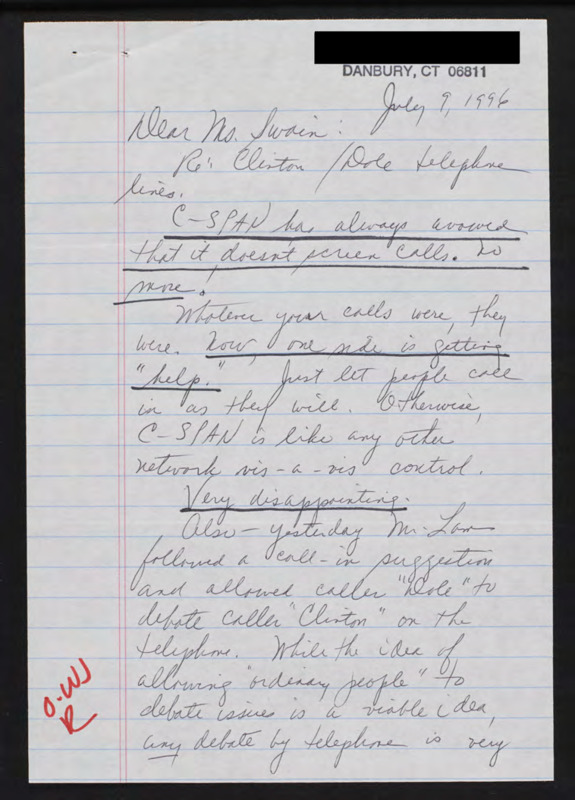 DANBURY, CT 06811
July 9, 1996
Dear Ms. Swain:
Re: Clinton/Dole telephone
lines.
C-SPAN has always avowed
that it doesn't screen calls. No
more!
Whatever your calls were, they
were. Now, one side is getting
"help." Just let people call
in as they will. Otherwise,
C-SPAN is like any other
network vis-a-vis control.
Very disappointing.
Also - yesterday Mr. Lamb
followed a call-in suggestion
and allowed caller "Dole" to
debate caller "Clinton" on the
telephone. While the idea of
allowing "ordinary people" to
debate issues is a viable idea,
any debate by telephone is very
O.W
R